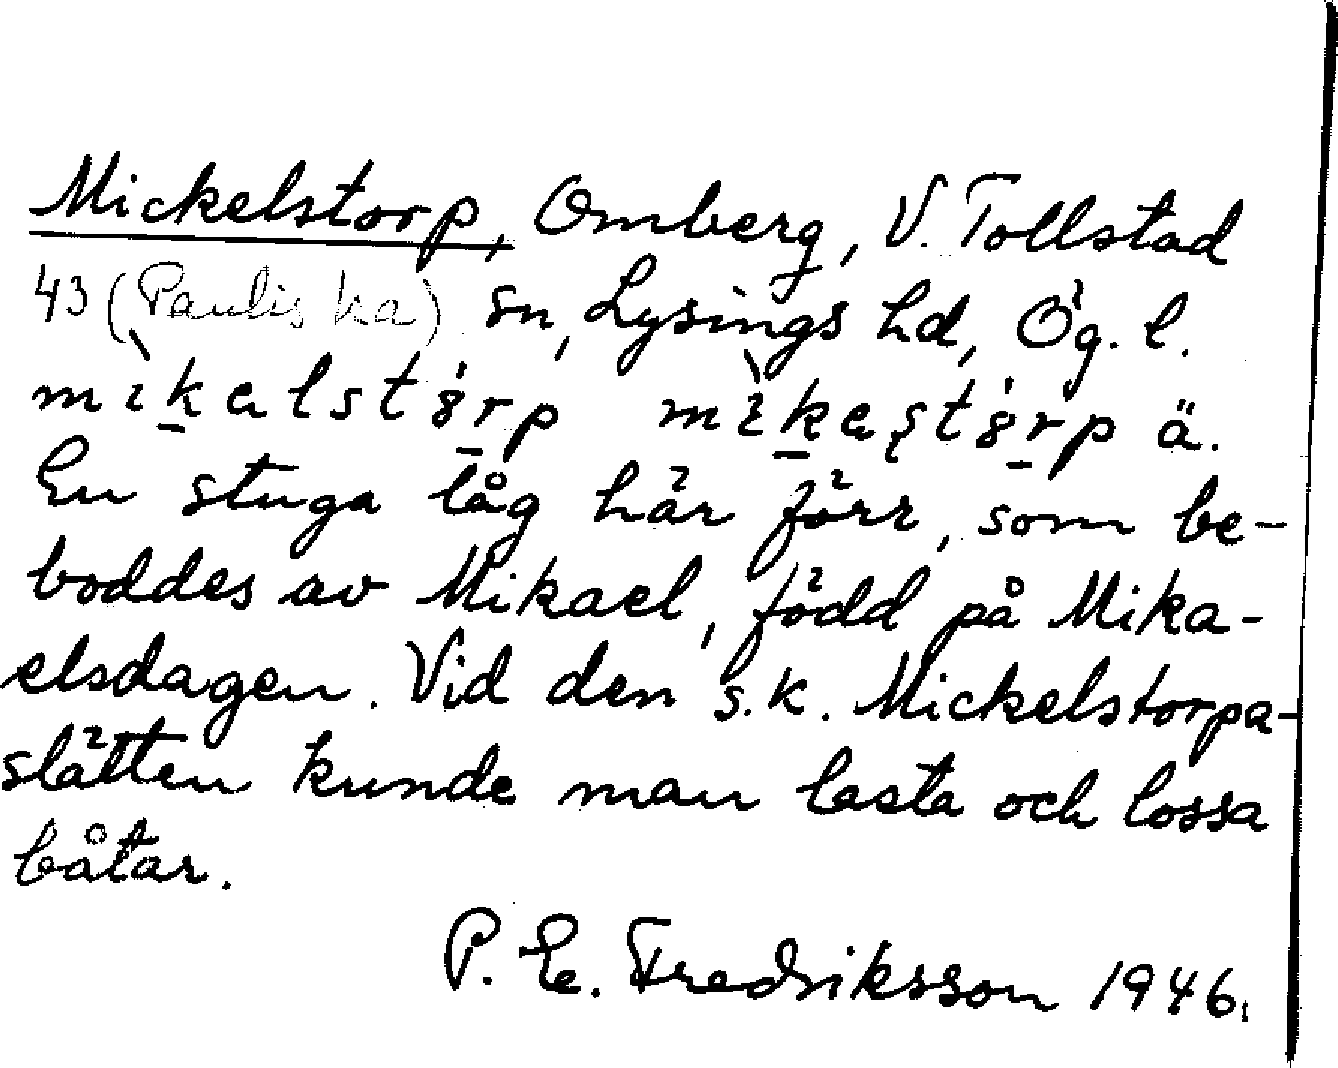 Mickelstorp, Omberg, V. Tollstad
43 (Pauliska) sn, Lysings hd, Ög. l.
mìkalstórp mìkastórp ä.
En stuga låg här förr, som be-
boddes av Mikael, född på Mika-
elsdagen. Vid den s.k. Mickelstorpa-
slätten kunde man lasta och lossa
båtar.
P. E. Fredriksson 1946.